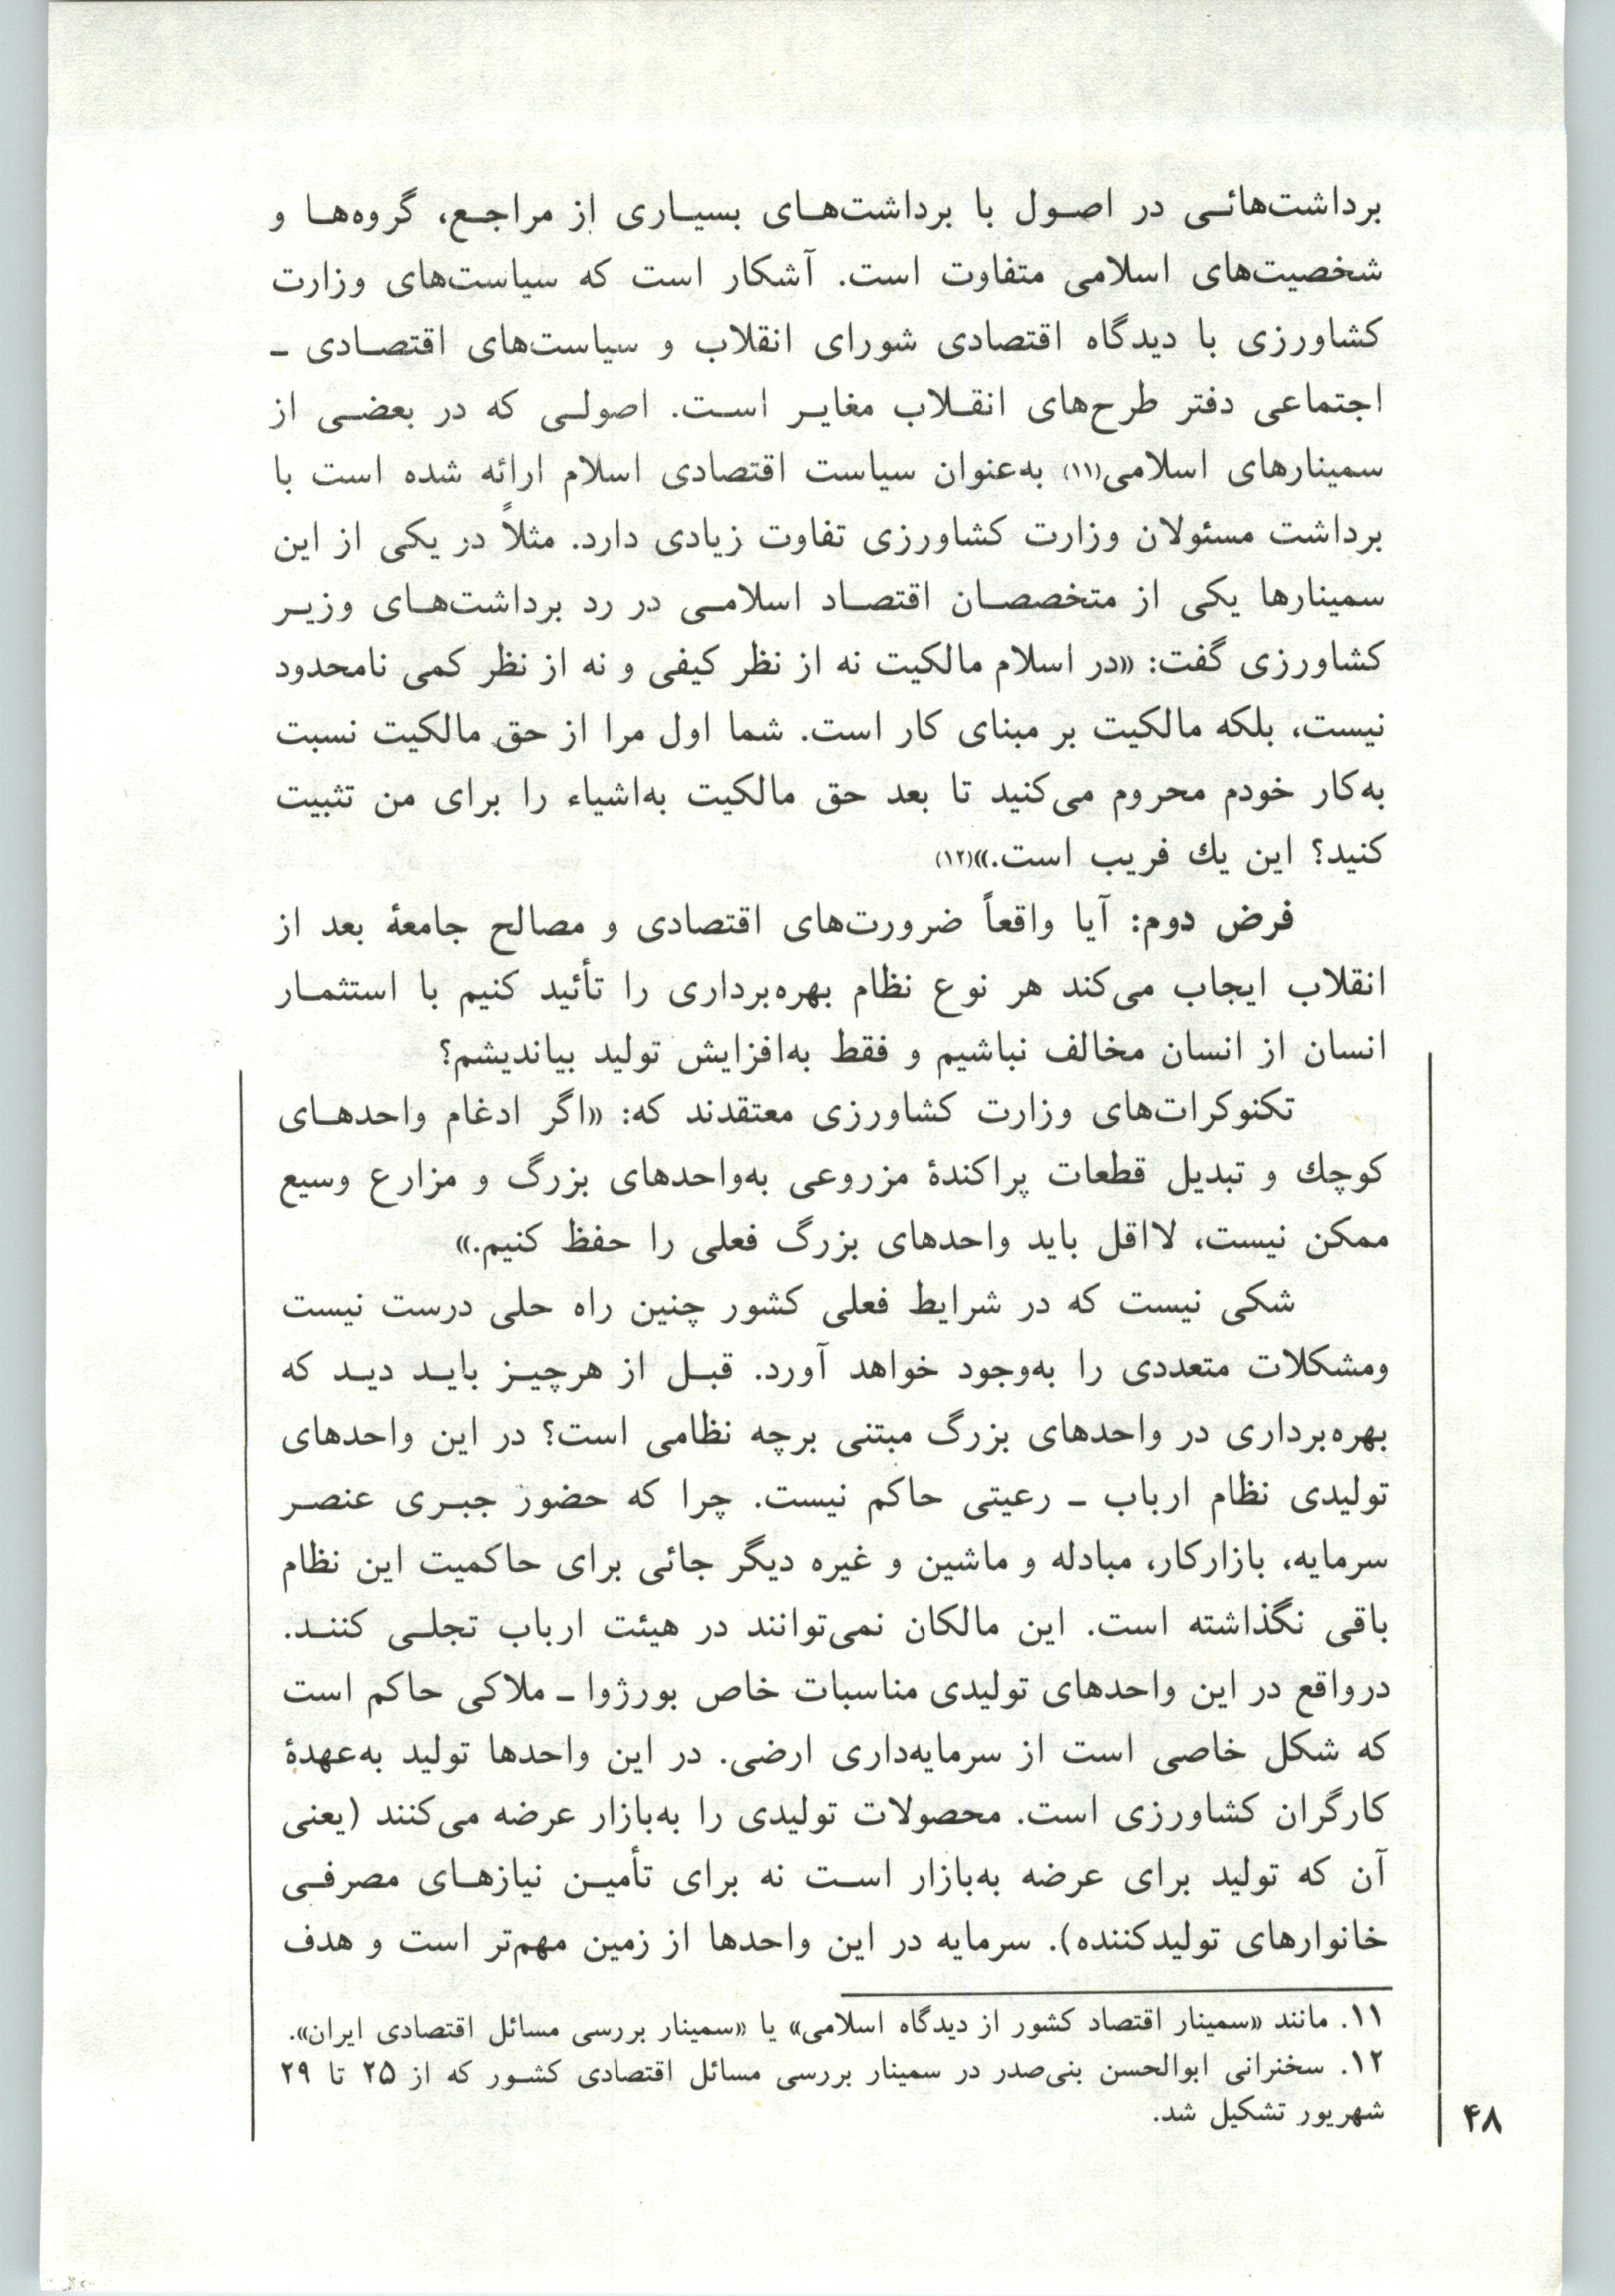 برداشت‌هائی در اصول با برداشت‌های بسیاری از مراجع، گروه‌ها و
شخصیت‌های اسلامی متفاوت است. آشکار است که سیاست‌های وزارت
کشاورزی با دیدگاه اقتصادی شورای انقلاب و سیاست‌های اقتصادی ـ
اجتماعی دفتر طرح‌های انقلاب مغایر است. اصولی که در بعضی از
سمینارهای اسلامی(۱۱) به‌عنوان سیاست اقتصادی اسلام ارائه شده است با
برداشت مسئولان وزارت کشاورزی تفاوت زیادی دارد. مثلاً در یکی از این
سمینارها یکی از متخصصان اقتصاد اسلامی در رد برداشت‌های وزیر
کشاورزی گفت: «در اسلام مالکیت نه از نظر کیفی و نه از نظر کمی نامحدود
نیست، بلکه مالکیت بر مبنای کار است. شما اول مرا از حق مالکیت نسبت
به‌کار خودم محروم می‌کنید تا بعد حق مالکیت به‌اشیاء را برای من تثبیت
کنید؟ این یك فریب است.»(۱۲)
فرض دوم: آیا واقعاً ضرورت‌های اقتصادی و مصالح جامعهٔ بعد از
انقلاب ایجاب می‌کند هر نوع نظام بهره‌برداری را تأئید کنیم با استثمار
انسان از انسان مخالف نباشیم و فقط به‌افزایش تولید بیاندیشم؟
تکنوکرات‌های وزارت کشاورزی معتقدند که: «اگر ادغام واحدهای
کوچك و تبدیل قطعات پراکندهٔ مزروعی به‌واحدهای بزرگ و مزارع وسیع
ممکن نیست، لااقل باید واحدهای بزرگ فعلی را حفظ کنیم.»
شکی نیست که در شرایط فعلی کشور چنین راه حلی درست نیست
ومشکلات متعددی را به‌وجود خواهد آورد. قبل از هرچیز باید دید که
بهره‌برداری در واحدهای بزرگ مبتنی برچه نظامی است؟ در این واحدهای
تولیدی نظام ارباب ـ رعیتی حاکم نیست. چرا که حضور جبری عنصر
سرمایه، بازارکار، مبادله و ماشین و غیره دیگر جائی برای حاکمیت این نظام
باقی نگذاشته است. این مالکان نمی‌توانند در هیئت ارباب تجلی کنند.
درواقع در این واحدهای تولیدی مناسبات خاص بورژوا ـ ملاکی حاکم است
که شکل خاصی است از سرمایه‌داری ارضی. در این واحدها تولید به‌عهدهٔ
کارگران کشاورزی است. محصولات تولیدی را به‌بازار عرضه می‌کنند (یعنی
آن که تولید برای عرضه به‌بازار است نه برای تأمین نیازهای مصرفی
خانوارهای تولیدکننده). سرمایه در این واحدها از زمین مهم‌تر است و هدف
۱۱. مانند «سمینار اقتصاد کشور از دیدگاه اسلامی» یا «سمینار بررسی مسائل اقتصادی ایران».
۱۲. سخنرانی ابوالحسن بنی‌صدر در سمینار بررسی مسائل اقتصادی کشور که از ۲۵ تا ۲۹
شهریور تشکیل شد.
۴۸